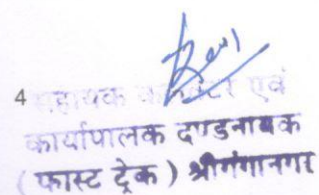 4 सहायक कलेक्टर एवं
कार्यपालक दण्डनायक
( फास्ट ट्रेक ) श्रीगंगानगर